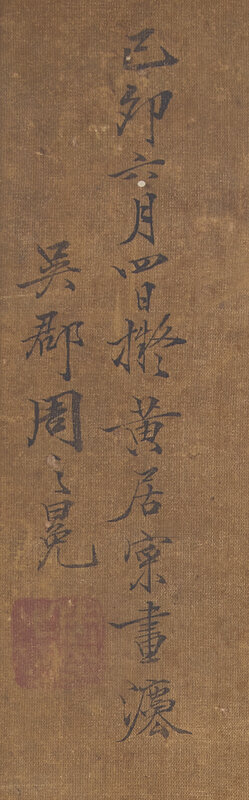 己卯六月四日擬黃居寀畫灋
吳郡周之冕